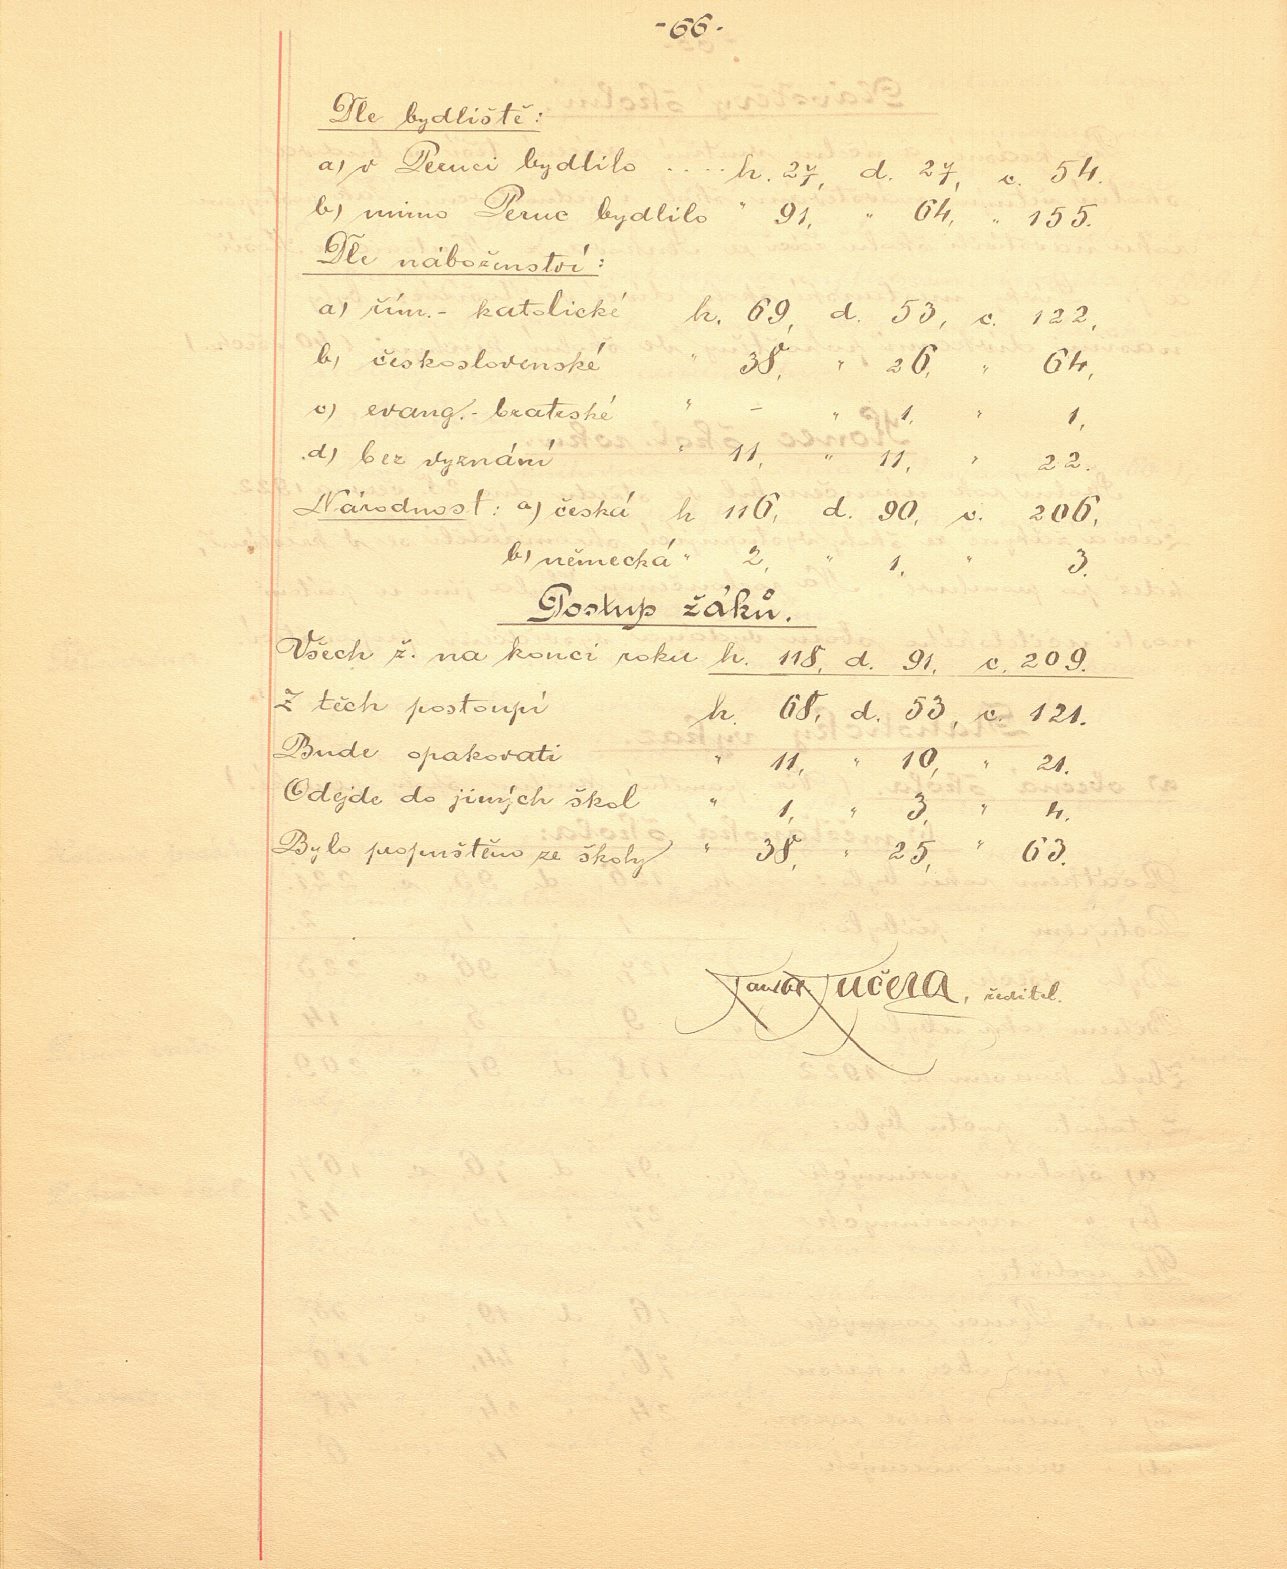 -66-
Dle bydliště:
a) v Peruci bydlilo .... h. 27, d. 27, c. 54.
b) mimo Peruc bydlilo " 91, " 64, " 155.
Dle náboženství:
a) řím.- katolické h. 69, d. 53, c. 122,
b) československé " 38, " 26, " 64,
c) evang.- bratrské " – " 1, " 1,
d) bez vyznání " 11, " 11, " 22.
Národnost: a) česká h 116, d. 90, c. 206,
b) německá " 2, " 1, " 3.
Postup žáků.
Všech ž. na konci roku h. 118, d. 91, c. 209.
Z těch postoupí h. 68, d. 53, c. 121.
Bude opakovati " 11, " 10, " 21.
Odejde do jiných škol " 1, " 3, " 4.
Bylo propuštěno ze školy " 38, " 25, " 63.
Kučera, ředitel.